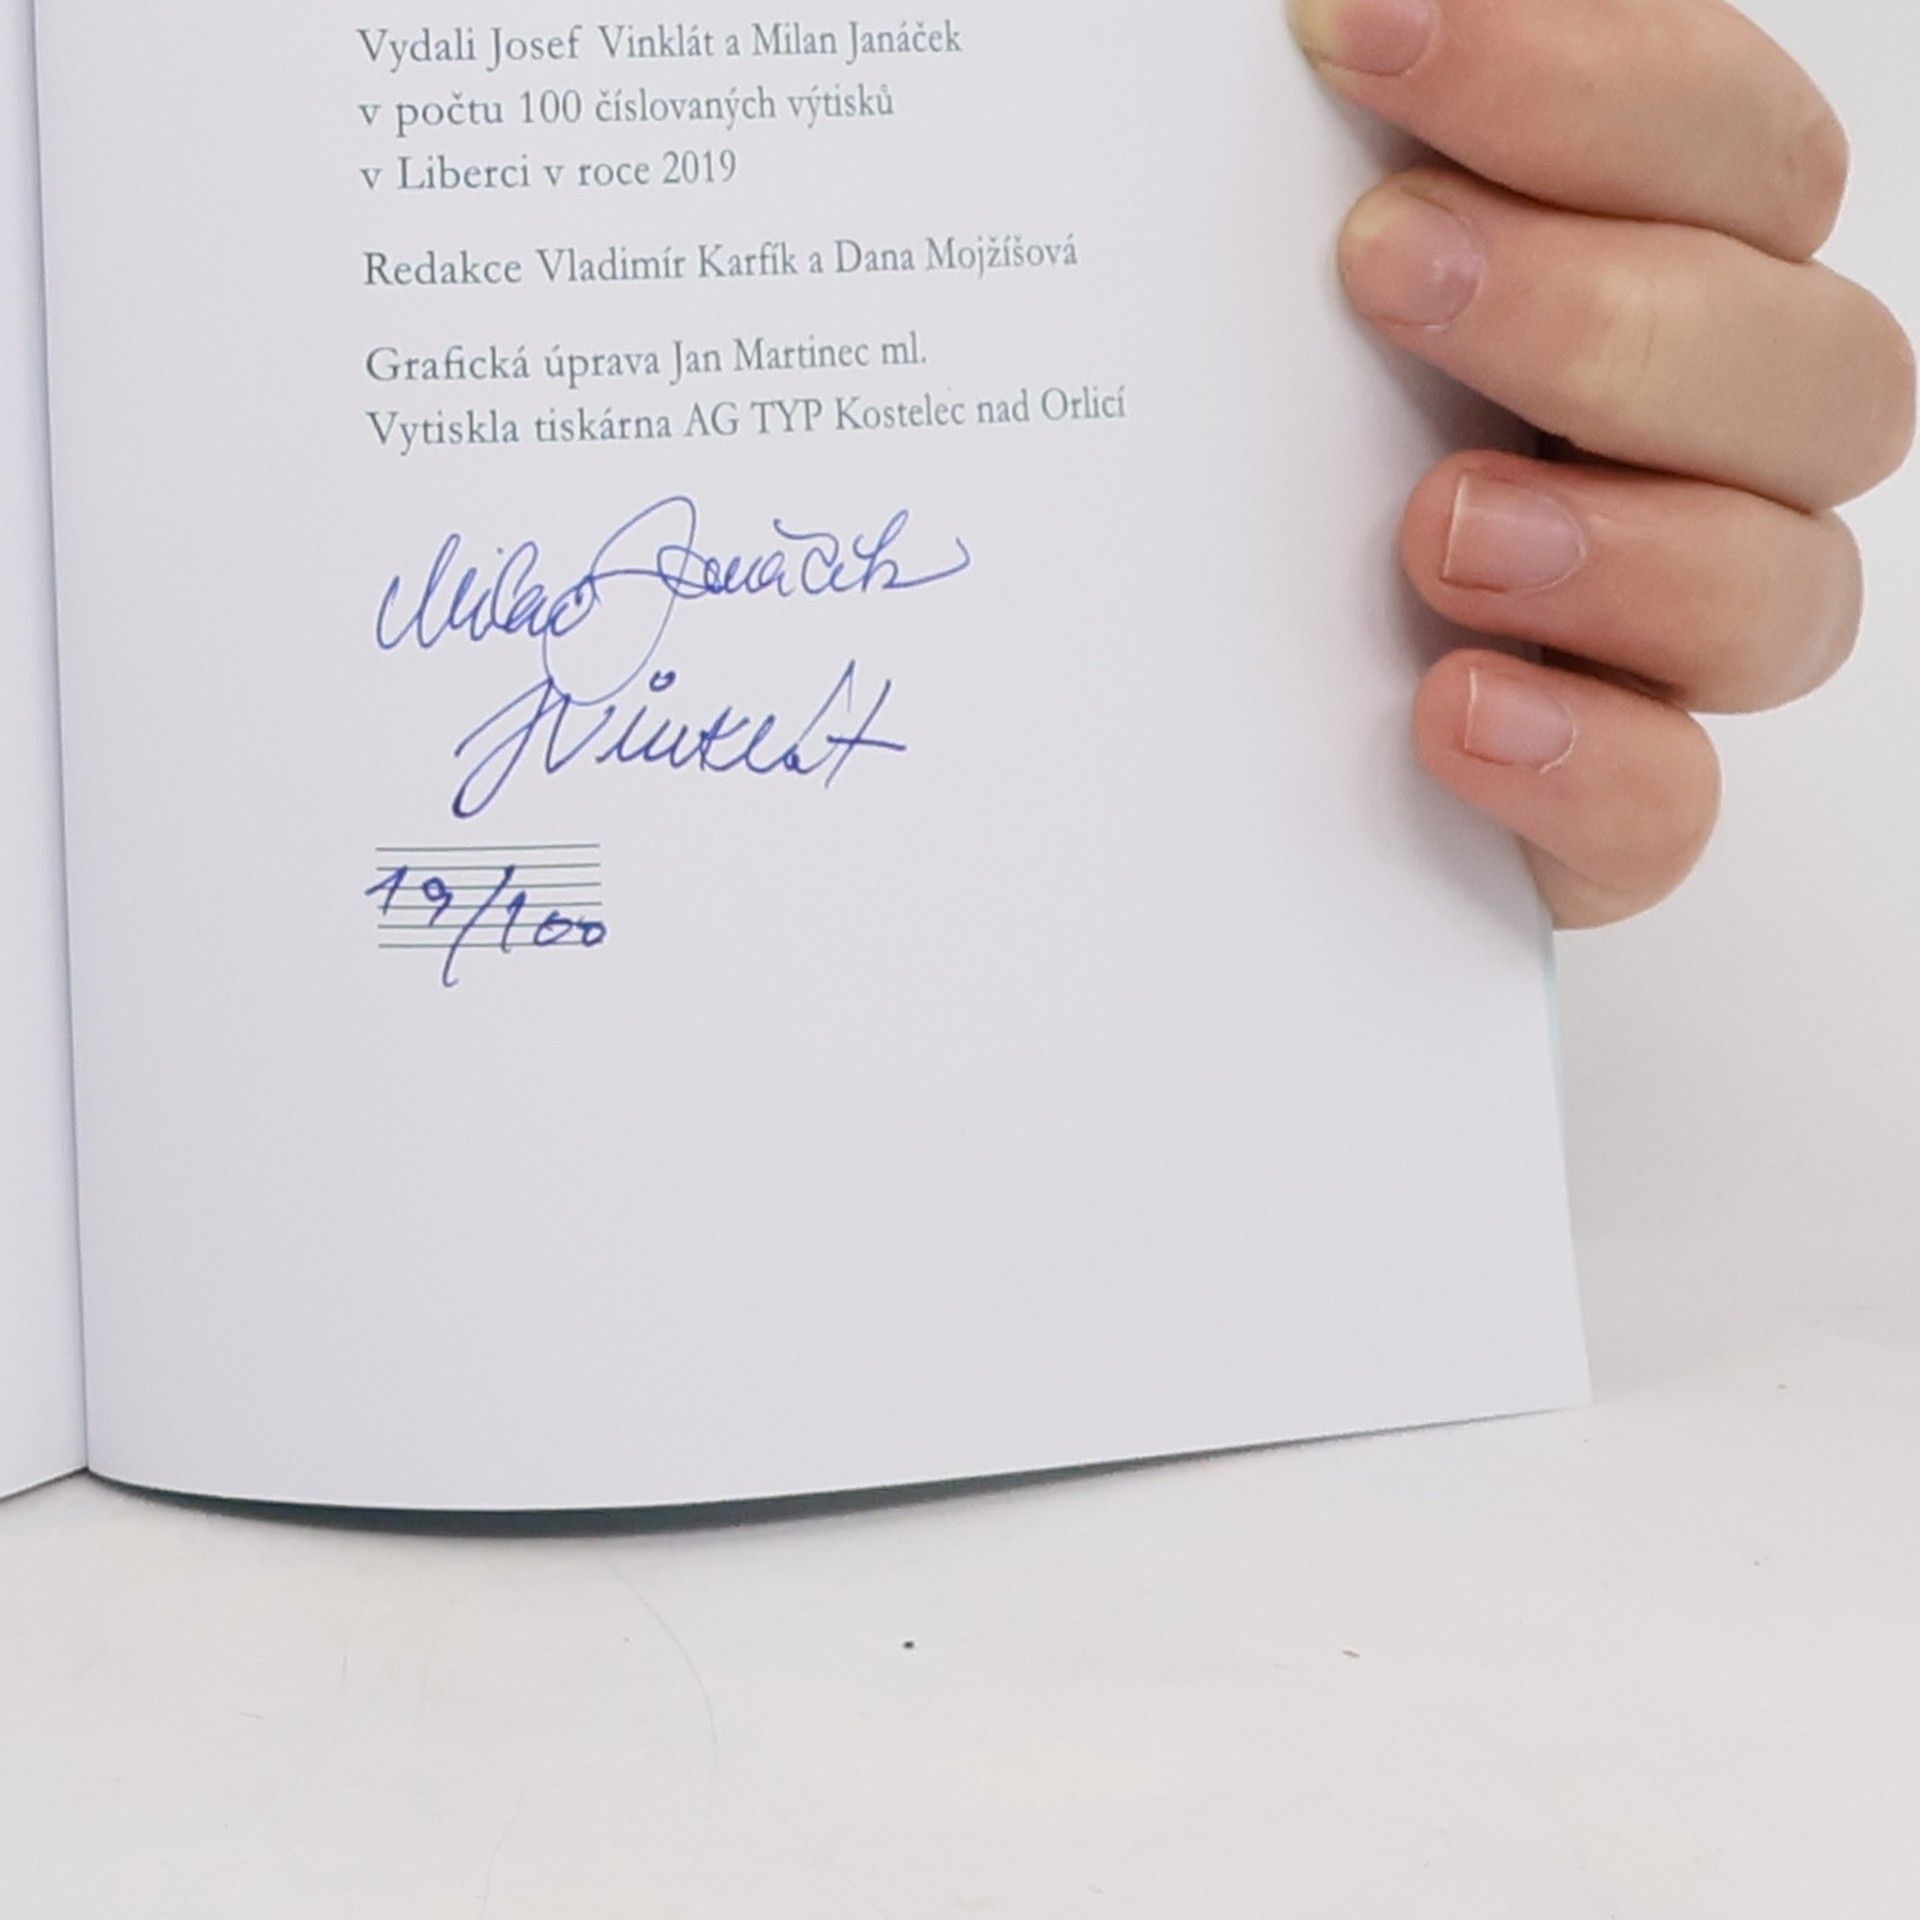 Vydali Josef Vinklát a Milan Janáček
v počtu 100 číslovaných výtisků
v Liberci v roce 2019
Redakce Vladimír Karfík a Dana Mojžíšová
Grafická úprava Jan Martinec ml.
Vytiskla tiskárna AG TYP Kostelec nad Orlicí
Milan Janáček
JVinklát
19/100